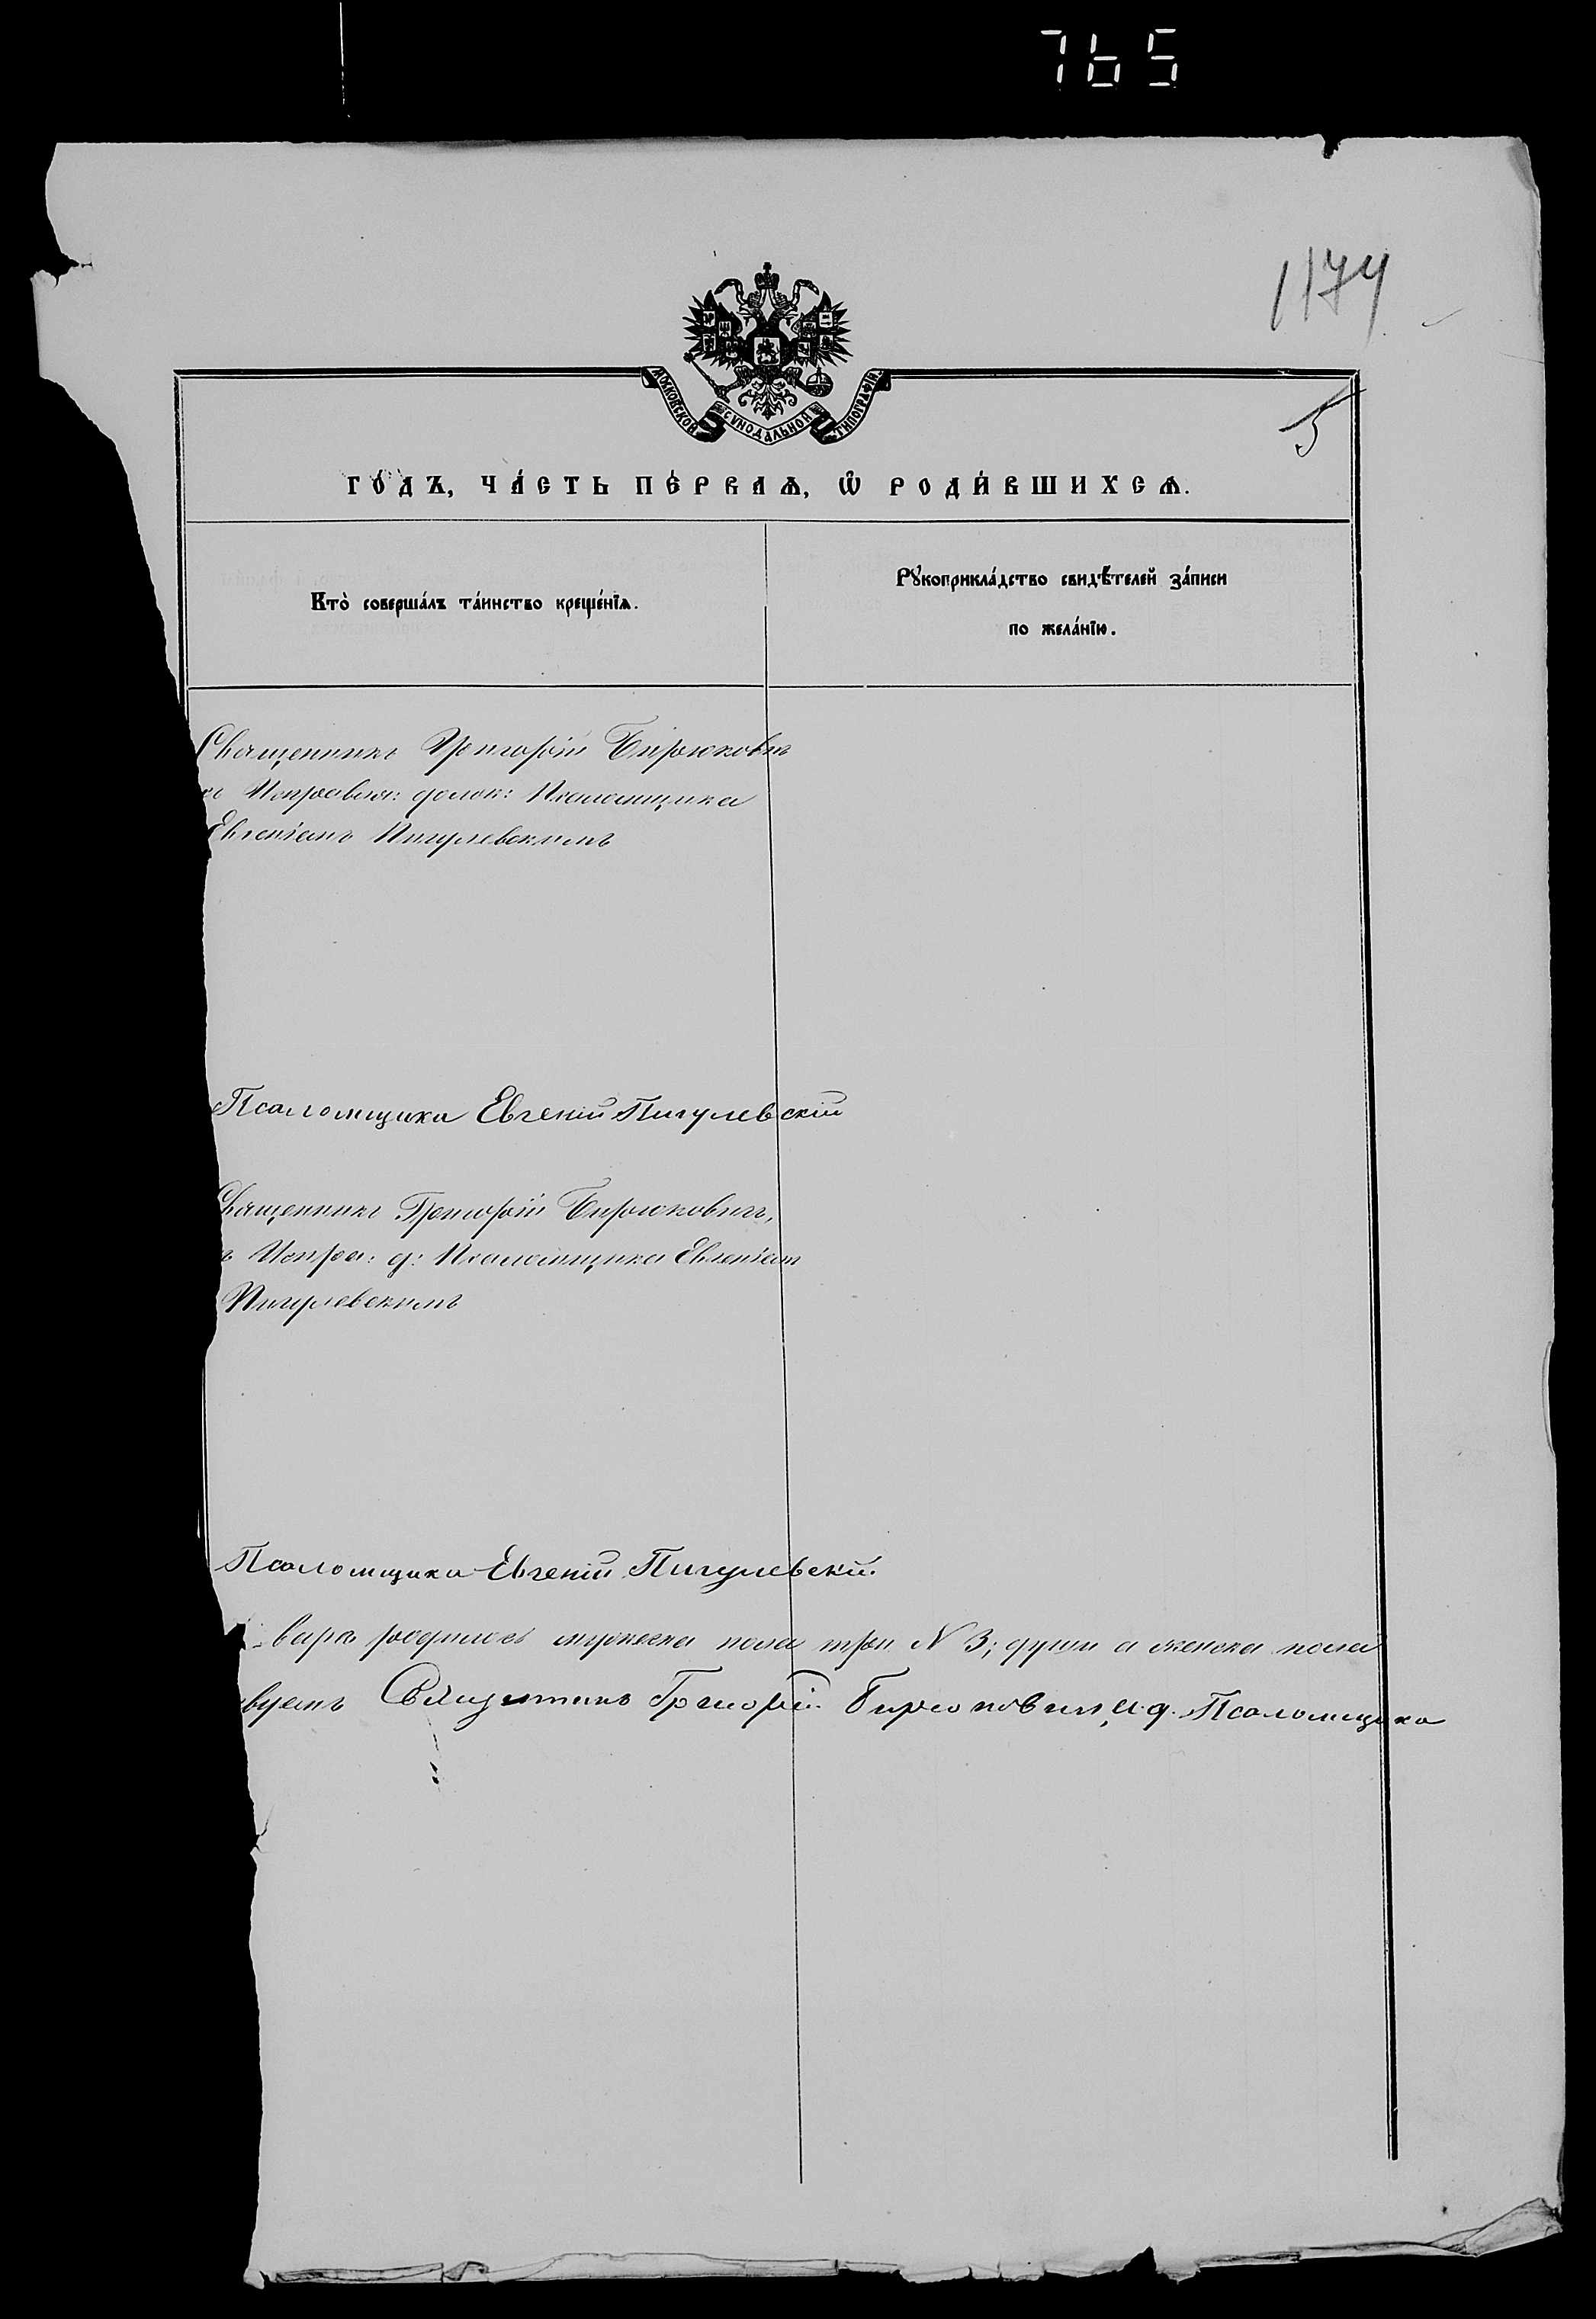 765
1174
МОСКОВСКОЙ СѴНОДАЛЬНОЙ ТИПОГРАФІИ
5
ГО́ДЪ, ЧА́СТЬ ПЕ́РВАѦ, Ѡ҆ РОДИ́ВШИХСѦ.
Кто̀ соверша́лъ та́инство креще́нїѧ.
Рꙋкоприкла́дство свидѣ́телей за́писи
по жела́нїю.
Священникъ Григорій Бирюковичъ
съ Исправля: долж: Псаломщика
Евгеніемъ Пигулевскимъ
Псаломщика Евгеній Пигулевскій
Священникъ Григорій Бирюковичъ,
съ Испра: д: Псаломщика Евгеніемъ
Пигулевскимъ
Псаломщика Евгеній Пигулевскій.
варѣ родилось мужеска пола три N 3; души а женска пола
Священникъ Григорій Бирюковичъ, И. д. Псаломщика